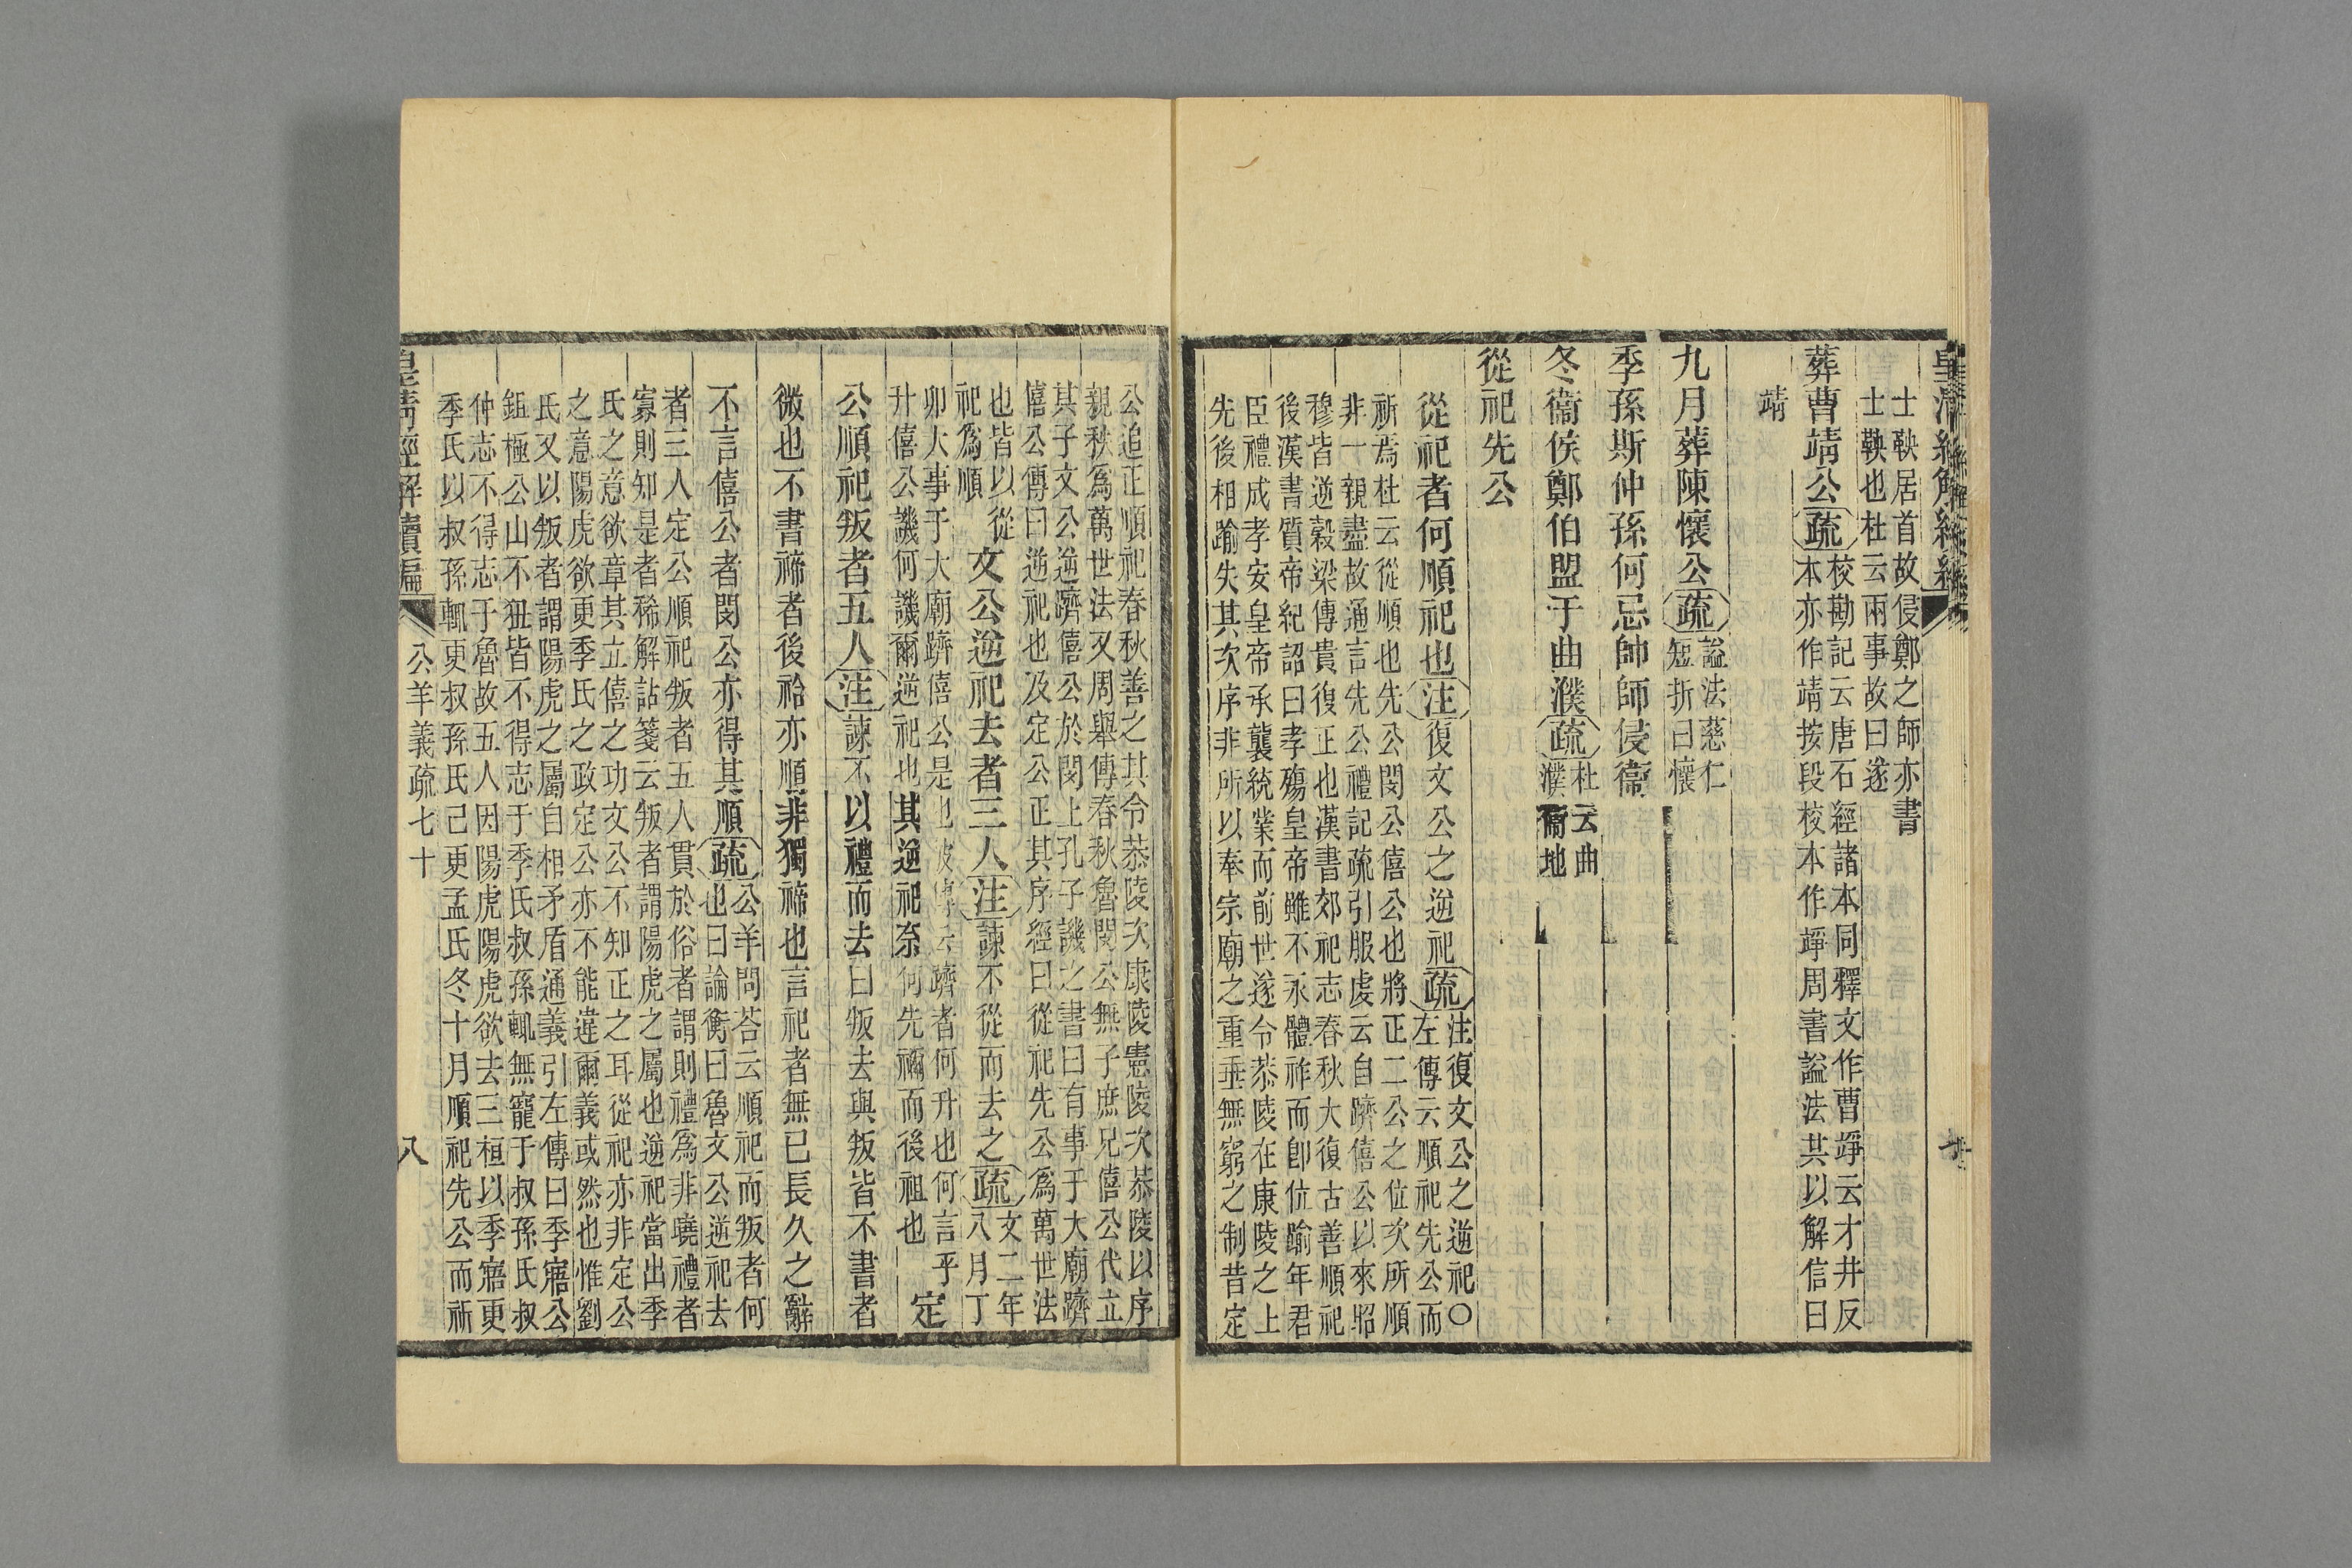 士鞅居首故侵鄭之師亦書
士鞅也杜云兩事故曰遂
葬曹靖公疏校勘記云唐石經諸本同釋文作曹竫云才井反
本亦作靖按段校本作竫周書謚法其以解信曰
靖
九月葬陳懷公疏謚法慈仁
短折曰懷
季孫斯仲孫何忌帥師侵衞
冬衞侯鄭伯盟于曲濮疏杜云曲
濮衞地
從祀先公
從祀者何順祀也注復文公之逆祀疏注復文公之逆祀○
左傳云順祀先公而
祈焉杜云從順也先公閔公僖公也將正二公之位次所順
非一親盡故通言先公禮記疏引服虔云自躋僖公以來昭
穆皆逆穀梁傳貴復正也漢書郊祀志春秋大復古善順祀
後漢書質帝紀詔曰孝殤皇帝雖不永體祚而卽位踰年君
臣禮成孝安皇帝承襲統業而前世遂令恭陵在康陵之上
先後相踰失其次序非所以奉宗廟之重垂無窮之制昔定
公追正順祀春秋善之其令恭陵次康陵憲陵次恭陵以序
親秩爲萬世法又周舉傳春秋魯閔公無子庶兄僖公代立
其子文公逆躋僖公於閔上孔子譏之書曰有事于大廟躋
僖公傳曰逆祀也及定公正其序經曰從祀先公爲萬世法
也皆以從
祀爲順
文公逆祀去者三人注諫不從而去之疏文二年
八月丁
卯大事于大廟躋僖公是也彼傳云躋者何升也何言乎
升僖公譏何譏爾逆祀也其逆祀奈何先禰而後祖也
定
公順祀叛者五人注諫不以禮而去曰叛去與叛皆不書者
微也不書禘者後祫亦順非獨禘也言祀者無已長久之辭
不言僖公者閔公亦得其順疏公羊問荅云順祀而叛者何
也曰論衡曰魯文公逆祀去
者三人定公順祀叛者五人貫於俗者謂則禮爲非曉禮者
寡則知是者稀解詁箋云叛者謂陽虎之屬也逆祀當出季
氏之意欲章其立僖之功文公不知正之耳從祀亦非定公
之意陽虎欲更季氏之政定公亦不能違爾義或然也惟劉
氏又以叛者謂陽虎之屬自相矛盾通義引左傳曰季寤公
鉏極公山不狃皆不得志于季氏叔孫輒無寵于叔孫氏叔
仲志不得志于魯故五人因陽虎陽虎欲去三桓以季寤更
季氏以叔孫輒更叔孫氏己更孟氏冬十月順祀先公而祈
皇清經解續編
公羊義疏七十
八